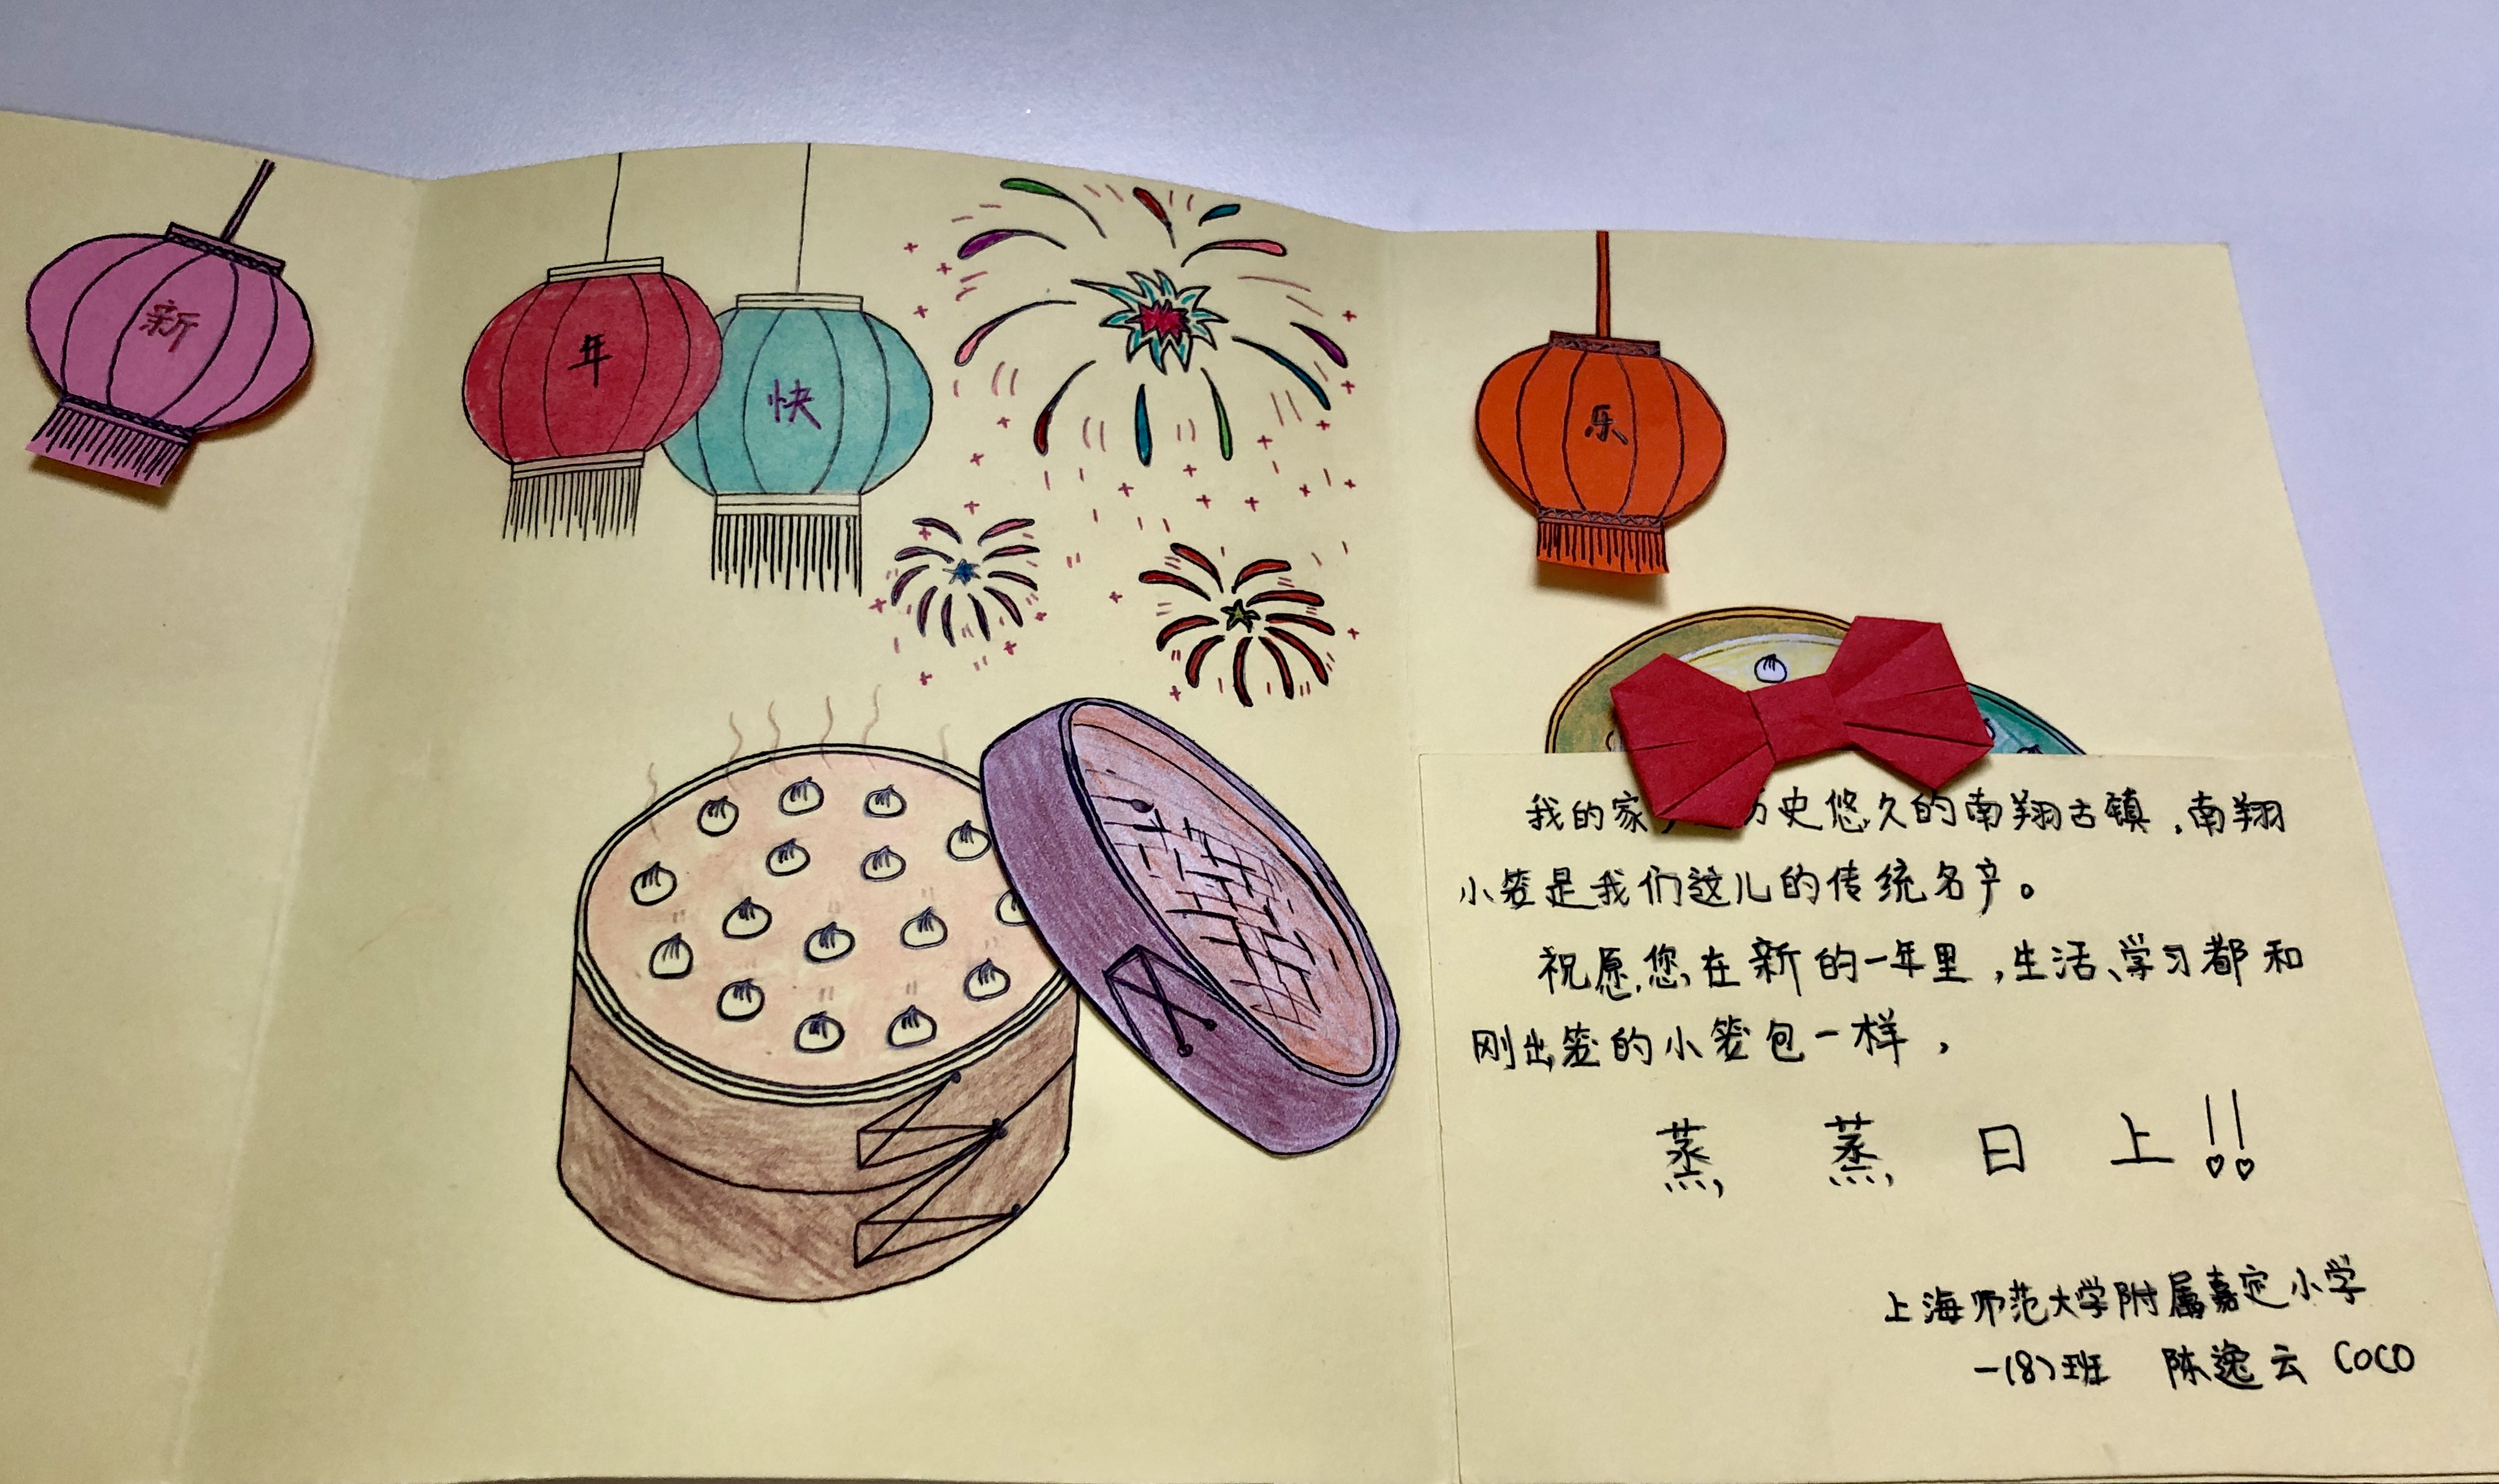 新
年
快
乐
我的家 史悠久的南翔古镇,南翔
小笼是我们这儿的传统名产。
祝愿您在新的一年里,生活、学习都和
刚出笼的小笼包一样,
蒸 蒸 日 上 !!
上海师范大学附属嘉定小学
一(8)班 陈逸云 COCO